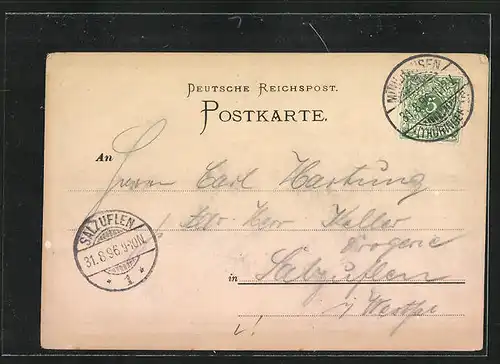 DEUTSCHE REICHSPOST.
POSTKARTE.
MÜHLHAUSEN
(THÜRINGEN)
5
An Herrn Carl Hartung
Herr Keller
Drogerie
SALZUFLEN
31.8.96.9-10N.
* 1 *
in Salzuflen